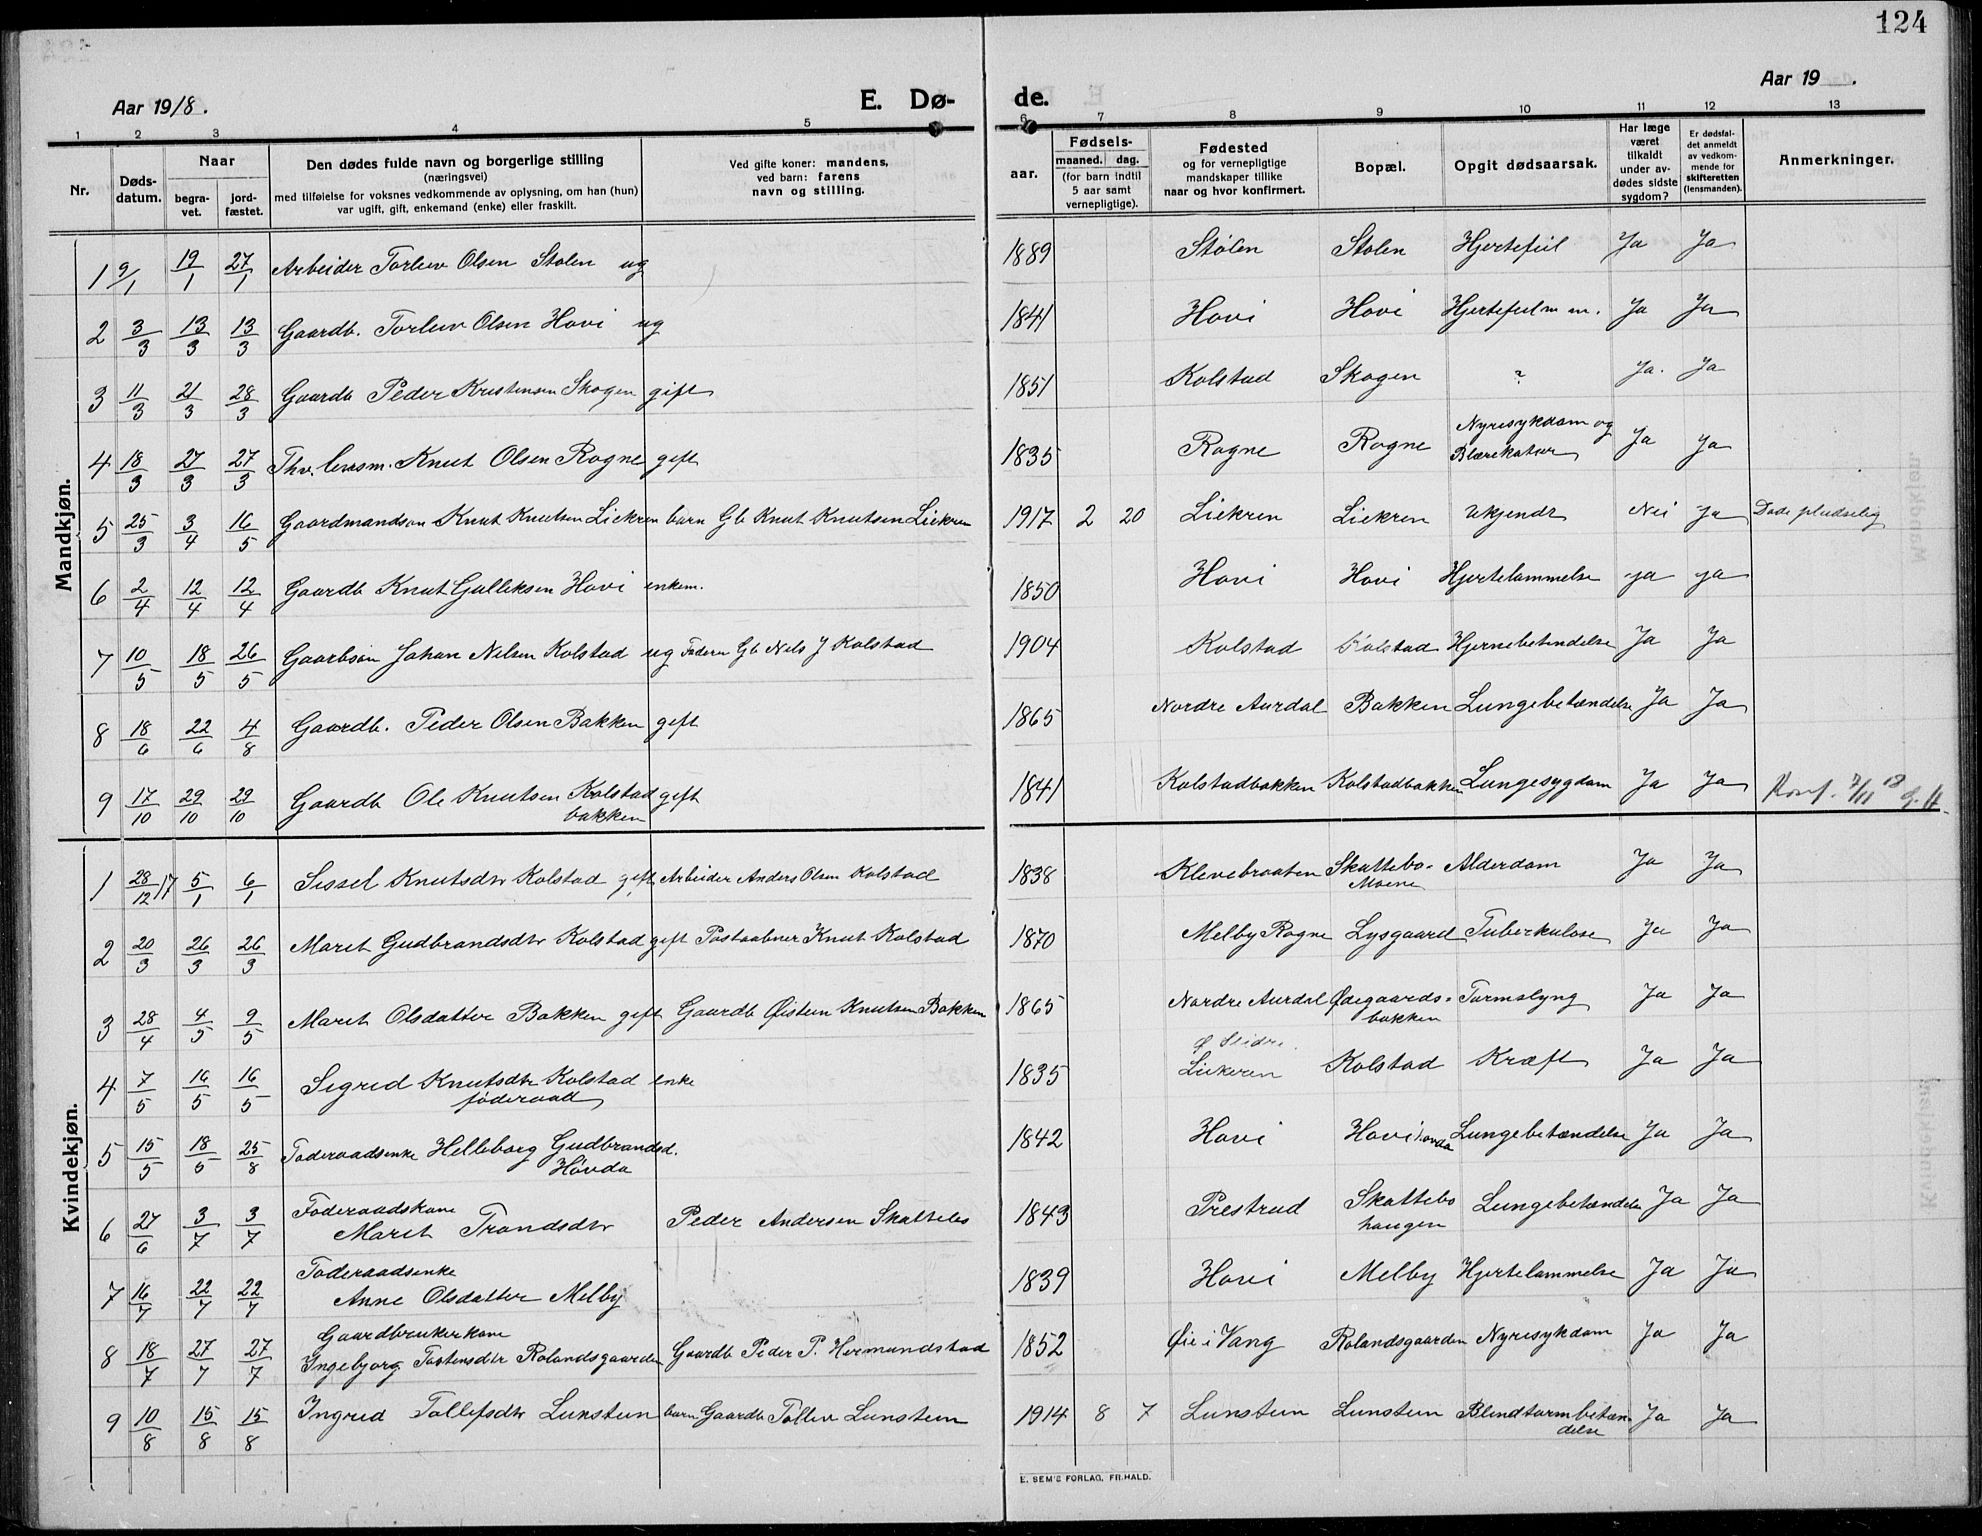 124
Aar 1918.
E. Dø-
de.
Aar 19 .
1 2 3 4 5 6 7 8 9 10 11 12 13
Nr.
Døds-
datum.
Naar
begra-
vet.
jord-
fæstet.
Den dødes fulde navn og borgerlige stilling
(næringsvei)
med tilføielse for voksnes vedkommende av oplysning, om han (hun)
var ugift, gift, enkemand (enke) eller fraskilt.
Ved gifte koner: mandens,
ved barn: farens
navn og stilling.
aar.
Fødsels-
maaned. dag.
(for barn indtil
5 aar samt
vernepligtige).
Fødested
og for vernepligtige
mandskaper tillike
naar og hvor konfirmert.
Bopæl.
Opgit dødsaarsak.
Har læge
været
tilkaldt
under av-
dødes sidste
sygdom?
Er dødsfal-
det anmeldt
av vedkom-
mende for
skifteretten
(lensmanden).
Anmerkninger.
Mandkjøn.
1 9/1 19/1 27/1 Arbeider Torleiv Olsen Stølen ug 1889 Stølen Stølen Hjertefeil Ja Ja
2 3/3 13/3 13/3 Gaardb. Torleiv Olsen Hovi ug 1841 Hovi Hovi Hjertefeil m m. Ja Ja
3 11/3 21/3 28/3 Gaardb Peder Kristensen Skogen gift 1851 Kolstad Skogen ? Ja. Ja
4 18/3 27/3 27/3 Thv. lensm. Knut Olsen Rogne gift 1835 Rogne Rogne Nyresykdom og
Blærekatar Ja Ja
5 25/3 3/4 16/5 Gaardmandsøn Knut Knutsen Liekren barn Gb Knut Knutsen Liekren 1917 2 20 Liekren Liekren Ukjendt Nei Ja Døde pludselig
6 2/4 12/4 12/4 Gaardb Knut Gulleksen Hovi enkem. 1850 Hovi Hovi Hjertelammelse Ja Ja
7 10/5 18/5 26/5 Gaardbsøn Johan Nelsen Kolstad ug Faderen Gb Nels J Kolstad 1904 Kolstad Kolstad Hjernebetendelse Ja Ja
8 18/6 22/6 4/8 Gaardb. Peder Olsen Bakken gift 1865 Nordre Aurdal Bakken Lungebetændelse Ja Ja
9 17/10 29/10 29/10 Gaardb Ole Knutsen Kolstad gift 1841 Kolstadbakken Kolstadbakken Lungesygdom Ja Ja Konf. 7/11 18
bakken
Kvindekjøn.
1 28/12 17 5/1 6/1 Sissel Knutsdtr Kolstad gift Arbeider Anders Olsen Kolstad 1838 Klevebraaten Skattebo- Alderdom Ja Ja
Moene
2 20/3 26/3 26/3 Marit Gudbrandsdtr Kolstad gift Postaabner Knut Kolstad 1870 Melby Rogne Lysgaard Tuberkulose Ja Ja
3 28/4 4/5 9/5 Marit Olsdatter Bakken gift Gaardb Øistein Knutsen Bakken 1865 Nordre Aurdal Ødegaards- Tarmslyng Ja Ja
bakken
4 7/5 16/5 16/5 Sigrid Knutsdtr Kolstad enke 1835 Ø Slidre Kolstad Kræft Ja Ja
føderaad Liekeren
5 15/5 18/5 25/8 Føderaadsenke Helleborg Gudbrandsd. 1842 Hovi Hovi hovda Lungebetændelse Ja Ja
Høvda
6 27/6 3/7 3/7 Føderaadskone
Marit Trondsdtr Peder Andersen Skattebo 1843 Prestrud Skattebo Lungebetændelse Ja Ja
haugen
7 16/7 22/7 22/7 Føderaadsenke
Anne Olsdatter Melby 1839 Hovi Melby Hjertelammelse Ja Ja
8 18/7 27/7 27/7 Gaardbrukerkone
Ingebjorg Tostensdtr Rolandsgaarden Gaardb Peder P. Hermundstad 1852 Øie i Vang Rolandsgaarden Nyresykdom Ja Ja
9 10/8 15/8 15/8 Ingrid Tollefsdtr Lunstein barn Gaardb Tollev Lunstein 1914 8 7 Lunstein Lunstein Blindtarmbetæn- Ja Ja
delse
E. SEM'S FORLAG, FR.HALD.